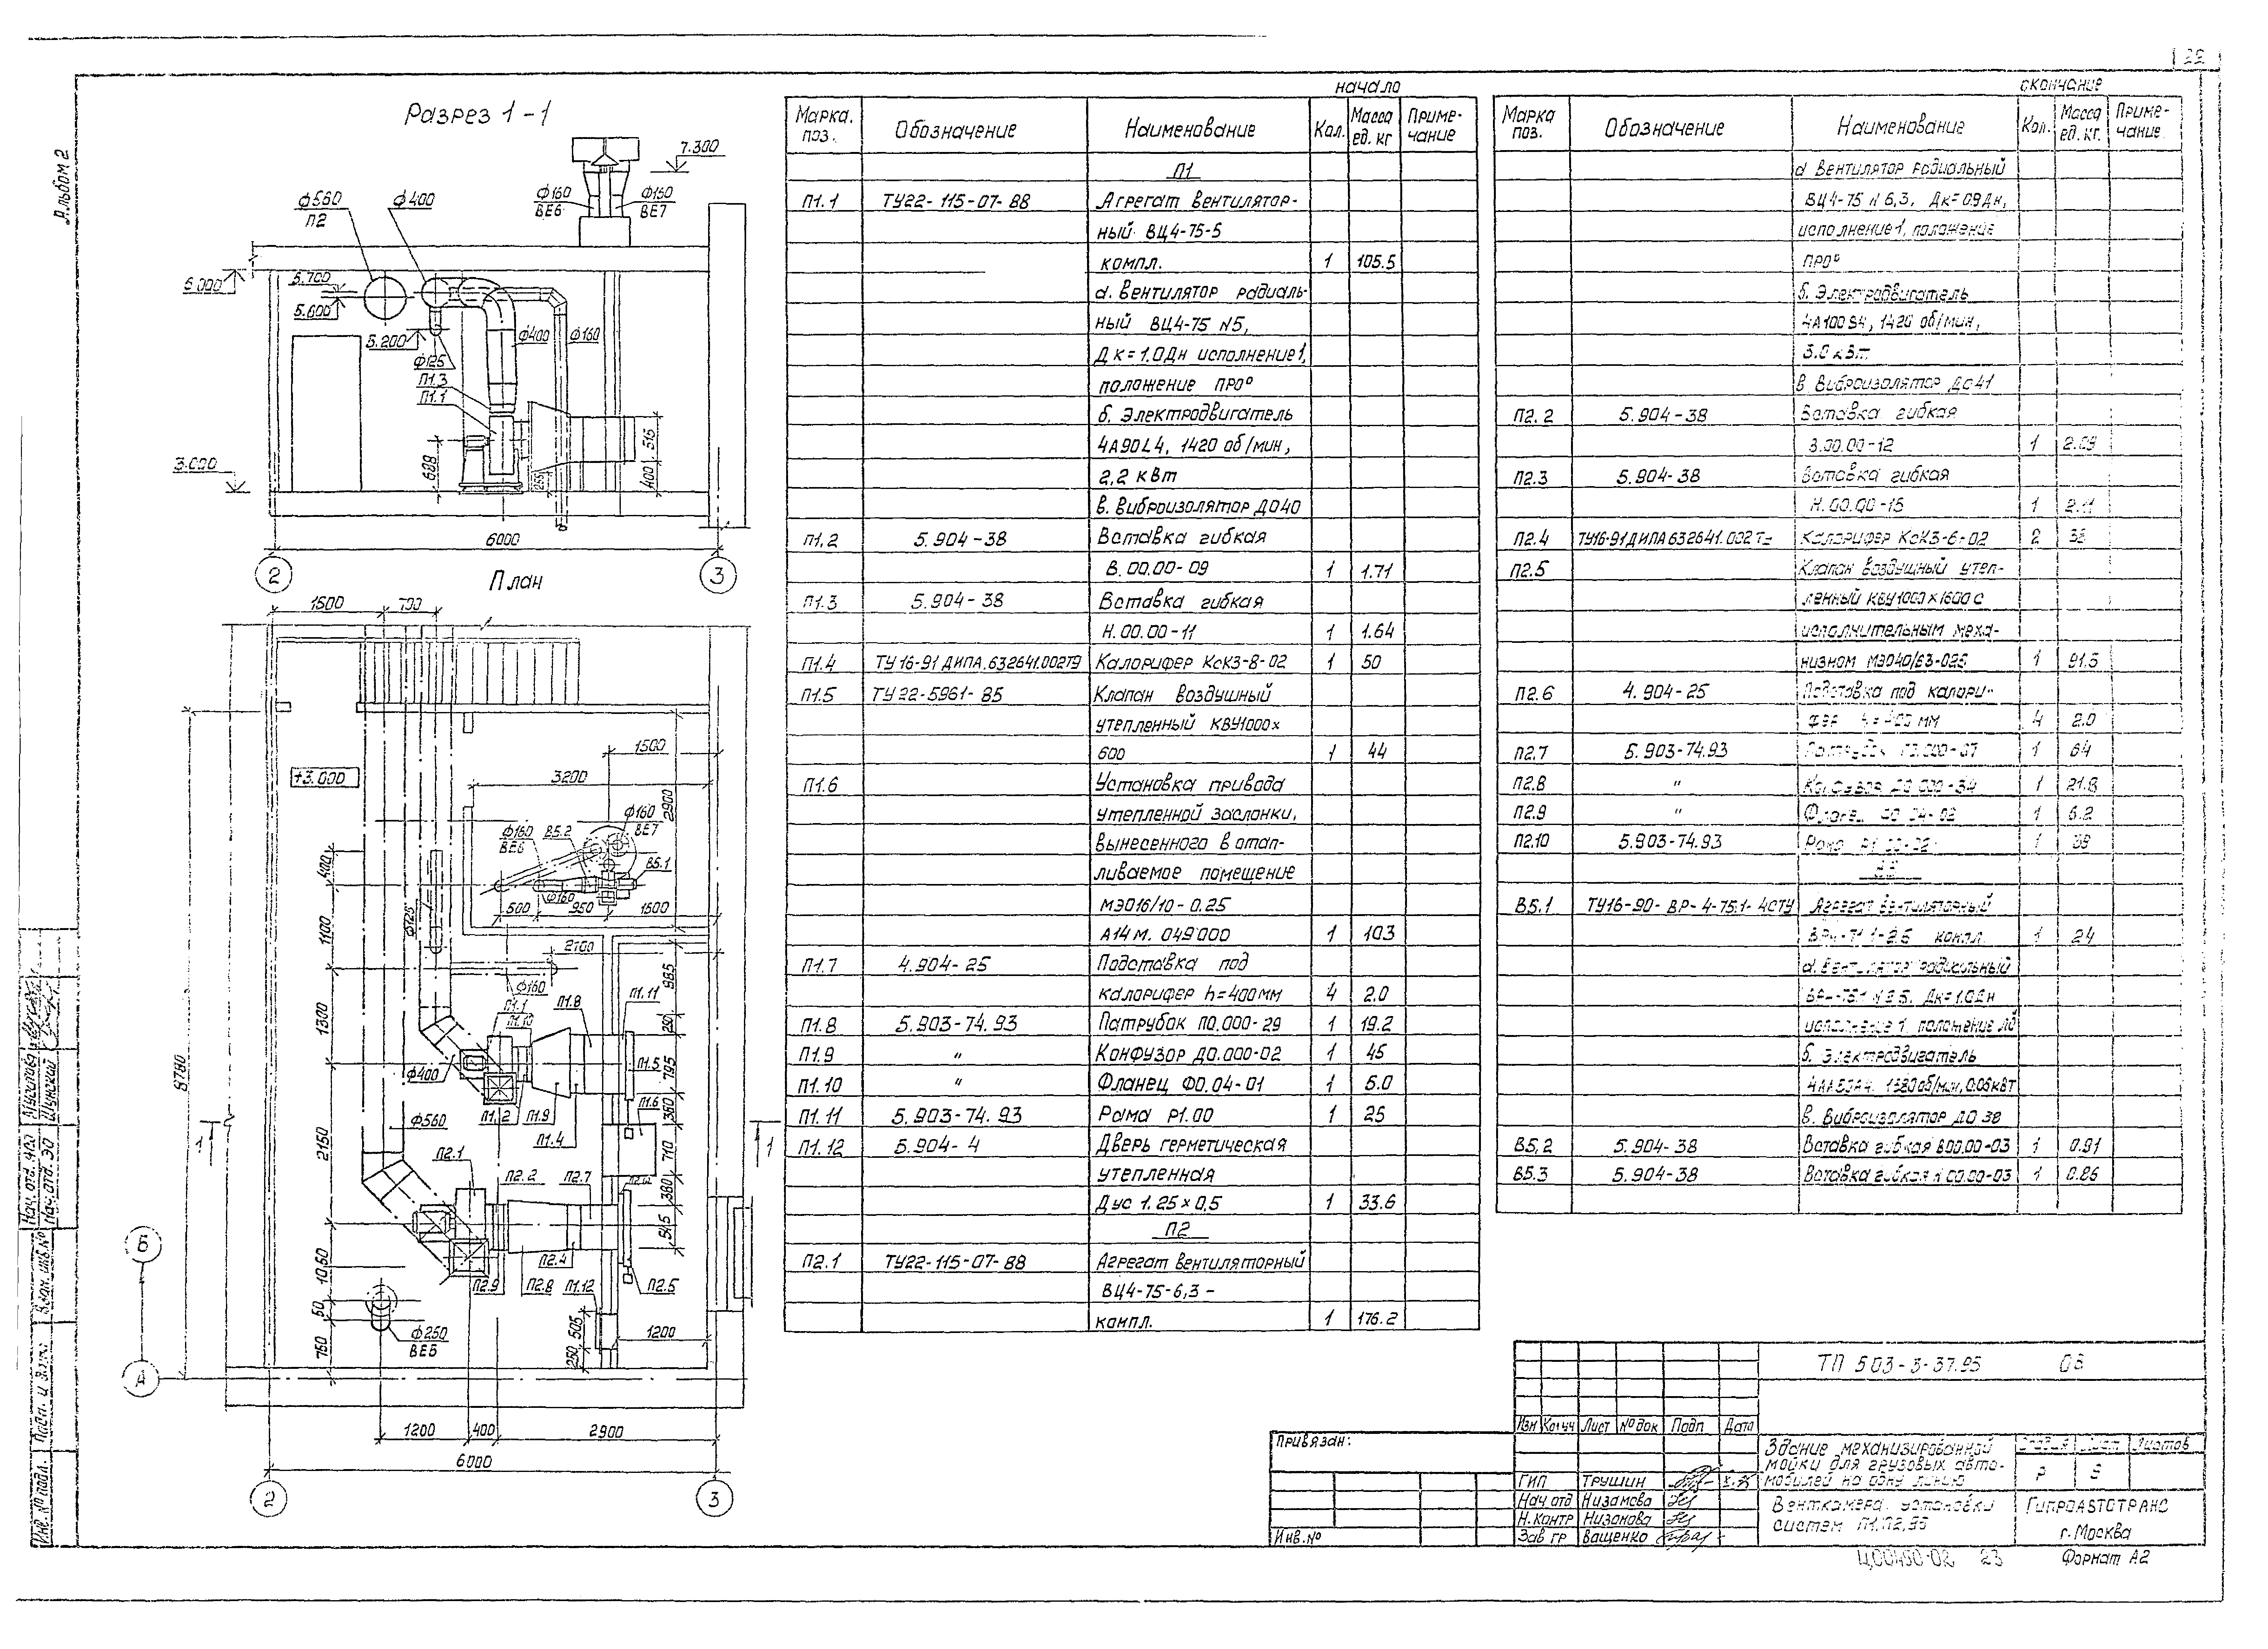 Альбом 2
Разрез 1-1
7.300
ф160 ВЕ6
ф160 ВЕ7
ф560 П2
ф400
6.000
5.700
5.600
5.200
ф125
П1.3
П1.1
ф400
ф160
3.000
688
255
400
515
6000
2
3
План
1500
700
1500
+3.000
3200
2900
8780
ф160 ВЕ6
В5.2
ф160 ВЕ7
В5.1
400
ф125
ф160
500
950
1600
1100
2100
985
ф160
П1.1
П1.10
П1.8
П1.11
250
1300
ф400
П1.5
795
П1.2
П1.9
П1.6
П1.4
350
ф560
1
1
2150
П2.1
П2.2
П2.7
710
380
545
П2.4
П2.9
П2.8
П1.12
П2.5
Б
1050
50
750
ф250
ВЕ5
505
250
1200
А
1200
400
2900
6000
2
3
начало
Марка. поз.
Обозначение
Наименование
Кол.
Масса ед. кг
Приме-чание
П1
П1.1 ТУ22-115-07-88 Агрегат вентилятор-
ный ВЦ4-75-5
компл. 1 105.5
а. вентилятор радиаль-
ный ВЦ4-75 N5,
Дк=1.0Дн исполнение1,
положение ПР0°
б. Электродвигатель
4А90L4, 1420 об/мин,
2,2 кВт
в. Виброизолятор ДО40
П1.2 5.904-38 Вставка гибкая
В.00.00-09 1 1.71
П1.3 5.904-38 Вставка гибкая
Н.00.00-11 1 1.64
П1.4 ТУ16-91 ДИПА.632641.002ТЭ Калорифер КсК3-8-02 1 50
П1.5 ТУ22-5961-85 Клапан воздушный
утепленный КВУ1000х
600 1 44
П1.6 Установка привода
утепленной заслонки,
вынесенного в отап-
ливаемое помещение
МЭО16/10-0.25
А14М.049000 1 10.3
П1.7 4.904-25 Подставка под
калорифер h=400мм 4 2.0
П1.8 5.903-74.93 Патрубок П0.000-29 1 19.2
П1.9 " Конфузор Д0.000-02 1 45
П1.10 " Фланец Ф0.04-01 1 5.0
П1.11 5.903-74.93 Рама Р1.00 1 25
П1.12 5.904-4 Дверь герметическая
утепленная
Дус 1.25х0,5 1 33.6
П2
П2.1 ТУ22-115-07-88 Агрегат вентиляторный
ВЦ4-75-6,3-
компл. 1 176.2
окончание
Марка поз.
Обозначение
Наименование
Кол.
Масса ед. кг.
Приме-чание.
а Вентилятор радиальный
ВЦ4-75 N 6,3, Дк=0.9Дн,
исполнение1, положение
ПР0°
б. Электродвигатель
4А100S4, 1420 об/мин,
3.0 кВт
в. Виброизолятор ДО41
П2.2 5.904-38 Вставка гибкая
В.00.00-12 1 2.09
П2.3 5.904-38 Вставка гибкая
Н.00.00-15 1 2.11
П2.4 Калорифер КсК3-6-02 2
П2.5 Клапан воздушный утеп-
ленный КВУ1000х1600 с
исполнительным меха-
низмом МЭО40/63-025 1 91.5
П2.6 4.904-25 Подставка под калори-
фер h=400 мм 4 2.0
П2.7 5.903-74.93 Патрубок 1 64
П2.8 " Конфузор Д0.000-34 1 21.8
П2.9 " Фланец 1 6.2
П2.10 5.903-74.93 Рама 1 39
В5.1 ТУ16-90- ВР-4-75.1-4СТУ Агрегат вентиляторный
компл. 1 24
а. Вентилятор радиальный
Дк=1.0Дн
исполнение 1, положение
б. Электродвигатель
1380 об/мин, 0.06кВт
в. Виброизолятор ДО 38
В5.2 5.904-38 Вставка гибкая В00.00-03 1 0.91
В5.3 5.904-38 Вставка гибкая Н 00.00-03 1 0.86
ТП 503-3-37.95 ОВ
Изм Кол.уч Лист № док Подп Дата
Привязан:
Инв. №
ГИП Трушин
Нач. отд Низамова
Н. контр Низамова
Зав гр Ващенко
Здание механизированной
мойки для грузовых авто-
мобилей на одну линию
Стадия Лист Листов
Р
Венткамера. Установки
систем П1,П2,В5
Гипроавтотранс
г. Москва
Ц00450-02 23
Формат А2
Нач. отд. ЭО Шунский
Взам. инв. №
Подп. и дата
Инв. № подл.